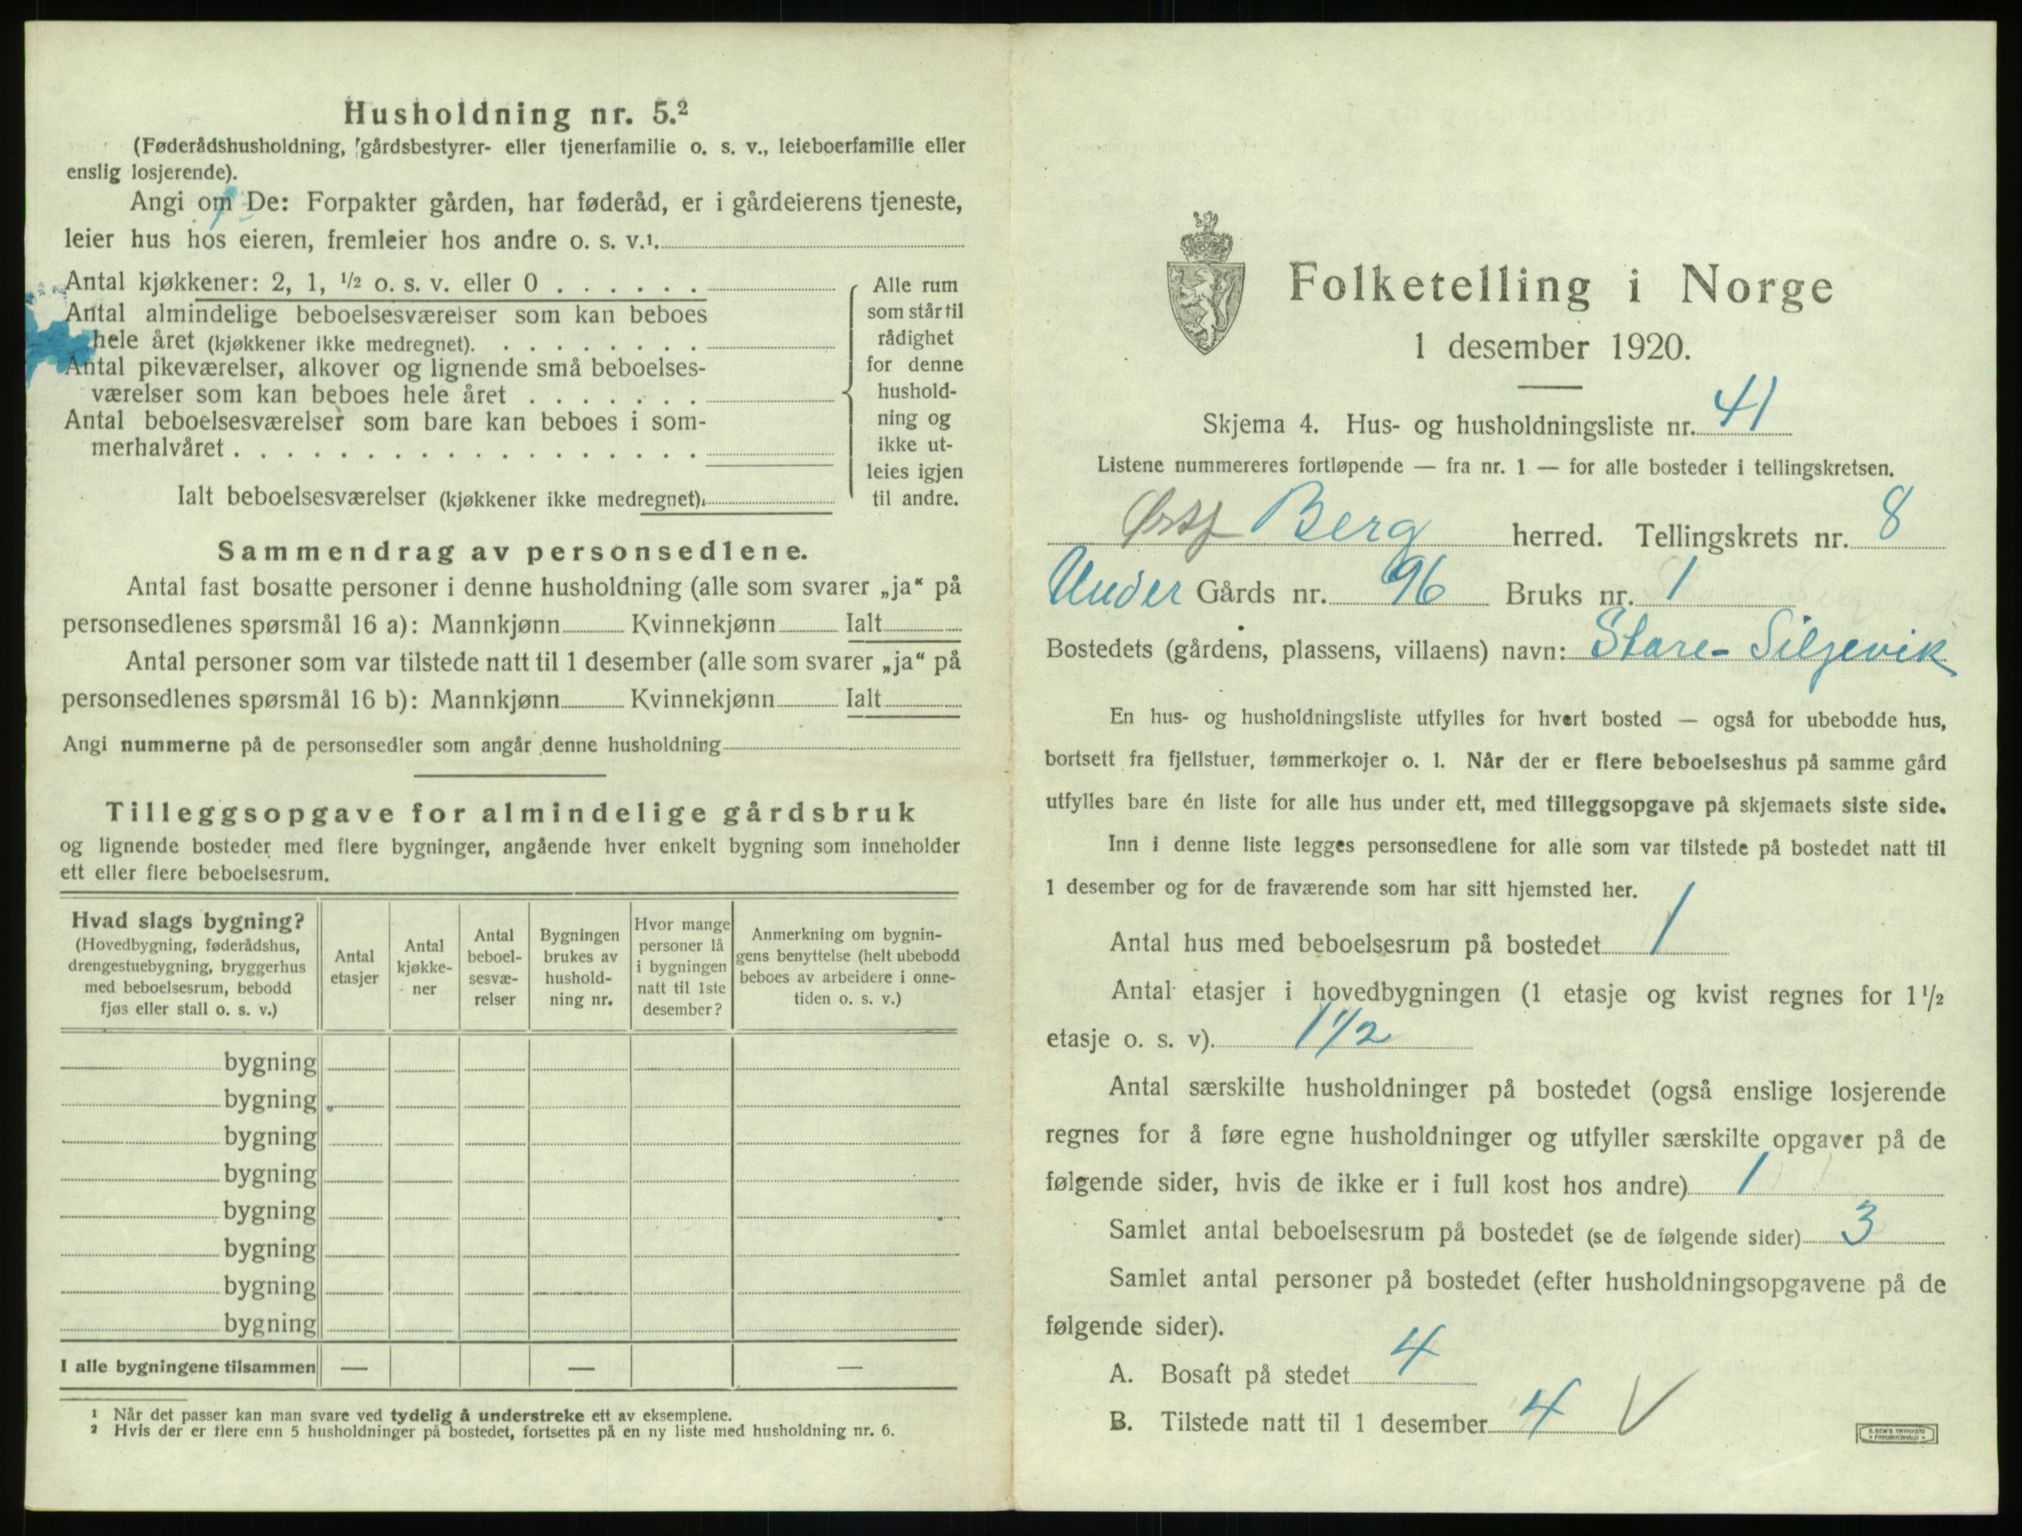 Husholdning nr. 5.²
(Føderådshusholdning, gårdsbestyrer- eller tjenerfamilie o. s. v., leieboerfamilie eller
enslig losjerende).
Angi om De: Forpakter gården, har føderåd, er i gårdeierens tjeneste,
leier hus hos eieren, fremleier hos andre o. s. v.¹
Antal kjøkkener: 2, 1, ½ o. s. v. eller 0 . . . . . .
Antal almindelige beboelsesværelser som kan beboes
hele året (kjøkkener ikke medregnet). . . . . . . . .
Antal pikeværelser, alkover og lignende små beboelses-
værelser som kan beboes hele året . . . . . . .
Antal beboelsesværelser som bare kan beboes i som-
merhalvåret . . . . . . . . . . . . . . . . . .
Ialt beboelsesværelser (kjøkkener ikke medregnet).
Alle rum
som står til
rådighet
for denne
hushold-
ning og
ikke ut-
leies igjen
til andre.
Sammendrag av personsedlene.
Antal fast bosatte personer i denne husholdning (alle som svarer „ja“ på
personsedlenes spørsmål 16 a): Mannkjønn Kvinnekjønn Ialt
Antal personer som var tilstede natt til 1 desember (alle som svarer „ja“ på
personsedlenes spørsmål 16 b): Mannkjønn Kvinnekjønn Ialt
Angi nummerne på de personsedler som angår denne husholdning
Tilleggsopgave for almindelige gårdsbruk
og lignende bosteder med flere bygninger, angående hver enkelt bygning som inneholder
ett eller flere beboelsesrum.
Hvad slags bygning?
(Hovedbygning, føderådshus,
drengestuebygning, bryggerhus
med beboelsesrum, bebodd
fjøs eller stall o. s. v.)
Antal
etasjer
Antal
kjøkke-
ner
Antal
beboel-
sesvæ-
relser
Bygningen
brukes av
hushold-
ning nr.
Hvor mange
personer lå
i bygningen
natt til 1ste
desember?
Anmerkning om bygnin-
gens benyttelse (helt ubebodd
beboes av arbeidere i onne-
tiden o. s. v.)
bygning
bygning
bygning
bygning
bygning
bygning
bygning
bygning
I alle bygningene tilsammen — — —
¹ Når det passer kan man svare ved tydelig å understreke ett av eksemplene.
² Hvis der er flere enn 5 husholdninger på bostedet, fortsettes på en ny liste med husholdning nr. 6.
Folketelling i Norge
1 desember 1920.
Skjema 4. Hus- og husholdningsliste nr. 41
Listene nummereres fortløpende — fra nr. 1 — for alle bosteder i tellingskretsen.
Østf Berg herred. Tellingskrets nr. 8
Under Gårds nr. 96 Bruks nr. 1
Bostedets (gårdens, plassens, villaens) navn: Stare-Siljevik
En hus- og husholdningsliste utfylles for hvert bosted — også for ubebodde hus,
bortsett fra fjellstuer, tømmerkojer o. l. Når der er flere beboelseshus på samme gård
utfylles bare én liste for alle hus under ett, med tilleggsopgave på skjemaets siste side.
Inn i denne liste legges personsedlene for alle som var tilstede på bostedet natt til
1 desember og for de fraværende som har sitt hjemsted her.
Antal hus med beboelsesrum på bostedet 1
Antal etasjer i hovedbygningen (1 etasje og kvist regnes for 1½
etasje o. s. v). 1½
Antal særskilte husholdninger på bostedet (også enslige losjerende
regnes for å føre egne husholdninger og utfyller særskilte opgaver på de
følgende sider, hvis de ikke er i full kost hos andre) 1
Samlet antal beboelsesrum på bostedet (se de følgende sider) 3
Samlet antal personer på bostedet (efter husholdningsopgavene på de
følgende sider).
A. Bosatt på stedet 4
B. Tilstede natt til 1 desember 4 V